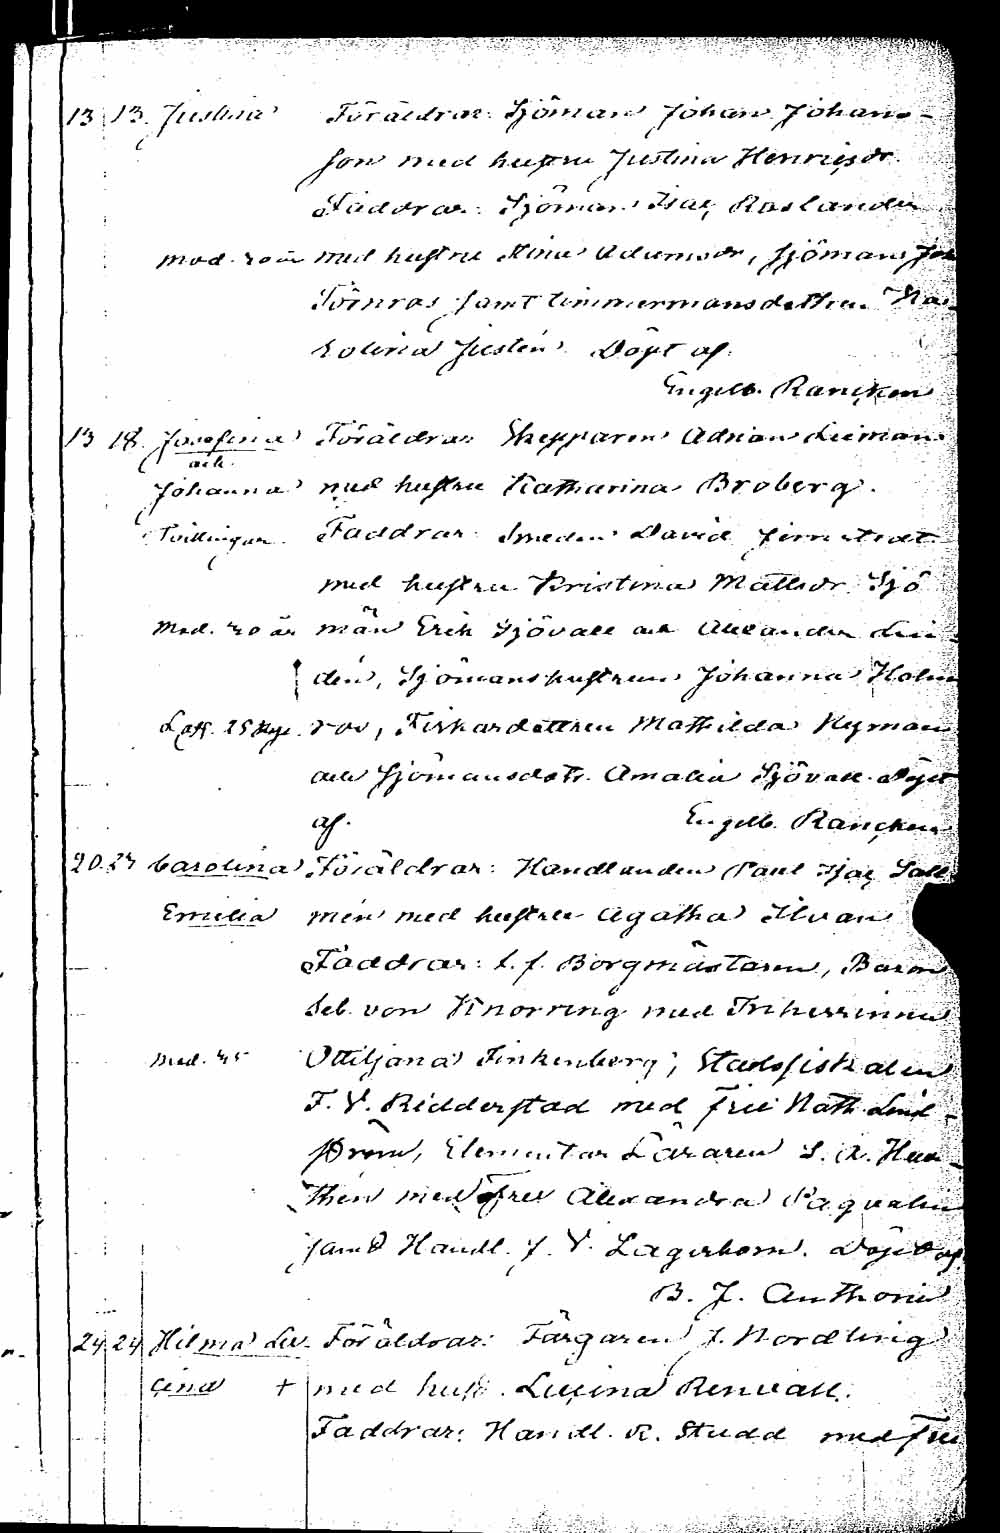 13 13. Justina Föräldrar: Sjöman Johan Johans-
son med hustru Justina Henricsdr.
Faddrar: Sjöman Isac Roslander
mod. 20 år med hustru Stina Adamsdr, Sjöman Joh
Törnros samt timmermansdottren Ka-
rolina Justén. Döpt af
Engelb. Rancken
13 18. Josefina Föräldrar Skepparen Adrian Liiman
och
Johanna med hustru Katharina Broberg.
Tvillingar. Faddrar Smeden David Jernstedt
med hustru Kristina Mattsdr. Sjö
Mod. 20 år män Erik Sjövall och Alexander Lin-
dén, Sjömanshustrun Johanna Holm
ros, Fiskardottren Mathilda Nyman
och Sjömansdottr. Amalia Sjövall. Döpt
af. Engelb. Rancken
20. 27 Carolina Föräldrar: Handlanden Paul Isac Sall
Emilia mén med hustru Agatha Silvan
Faddrar: t. f. Borgmästaren, Baron
Seb. von Knorring med Friherrinna
mod. 25 Ottiljana Finkenberg, Stadsfiskalen
F. V. Ridderstad med Fru Nath. Lind-
ström, Elementar Läraren
thén med Fru Alexandra Paqvalin
samt Handl. J. V. Lagerbom. Döpt af
B. J. Anthoni
24 24 Hilma Lu- Föräldrar: Färgaren J. Nordling
cina + med hust. Lucina Renvall.
Faddrar: Handl. R. Studd med Fru